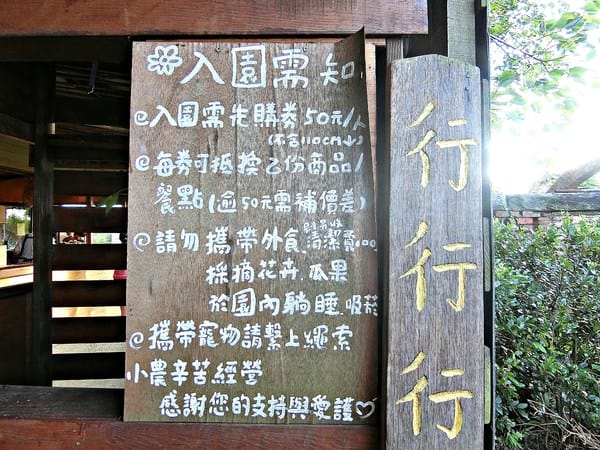 入園需知
入園需先購券50元/人
(不含110CM↓)
每券可抵換乙份商品/
餐點(逾50元需補價差)
請勿攜帶外食
清潔費100
採摘花卉.瓜果
於園內躺睡.吸菸
攜帶寵物請繫上繩索
小農辛苦經營
感謝您的支持與愛護♡
行行行